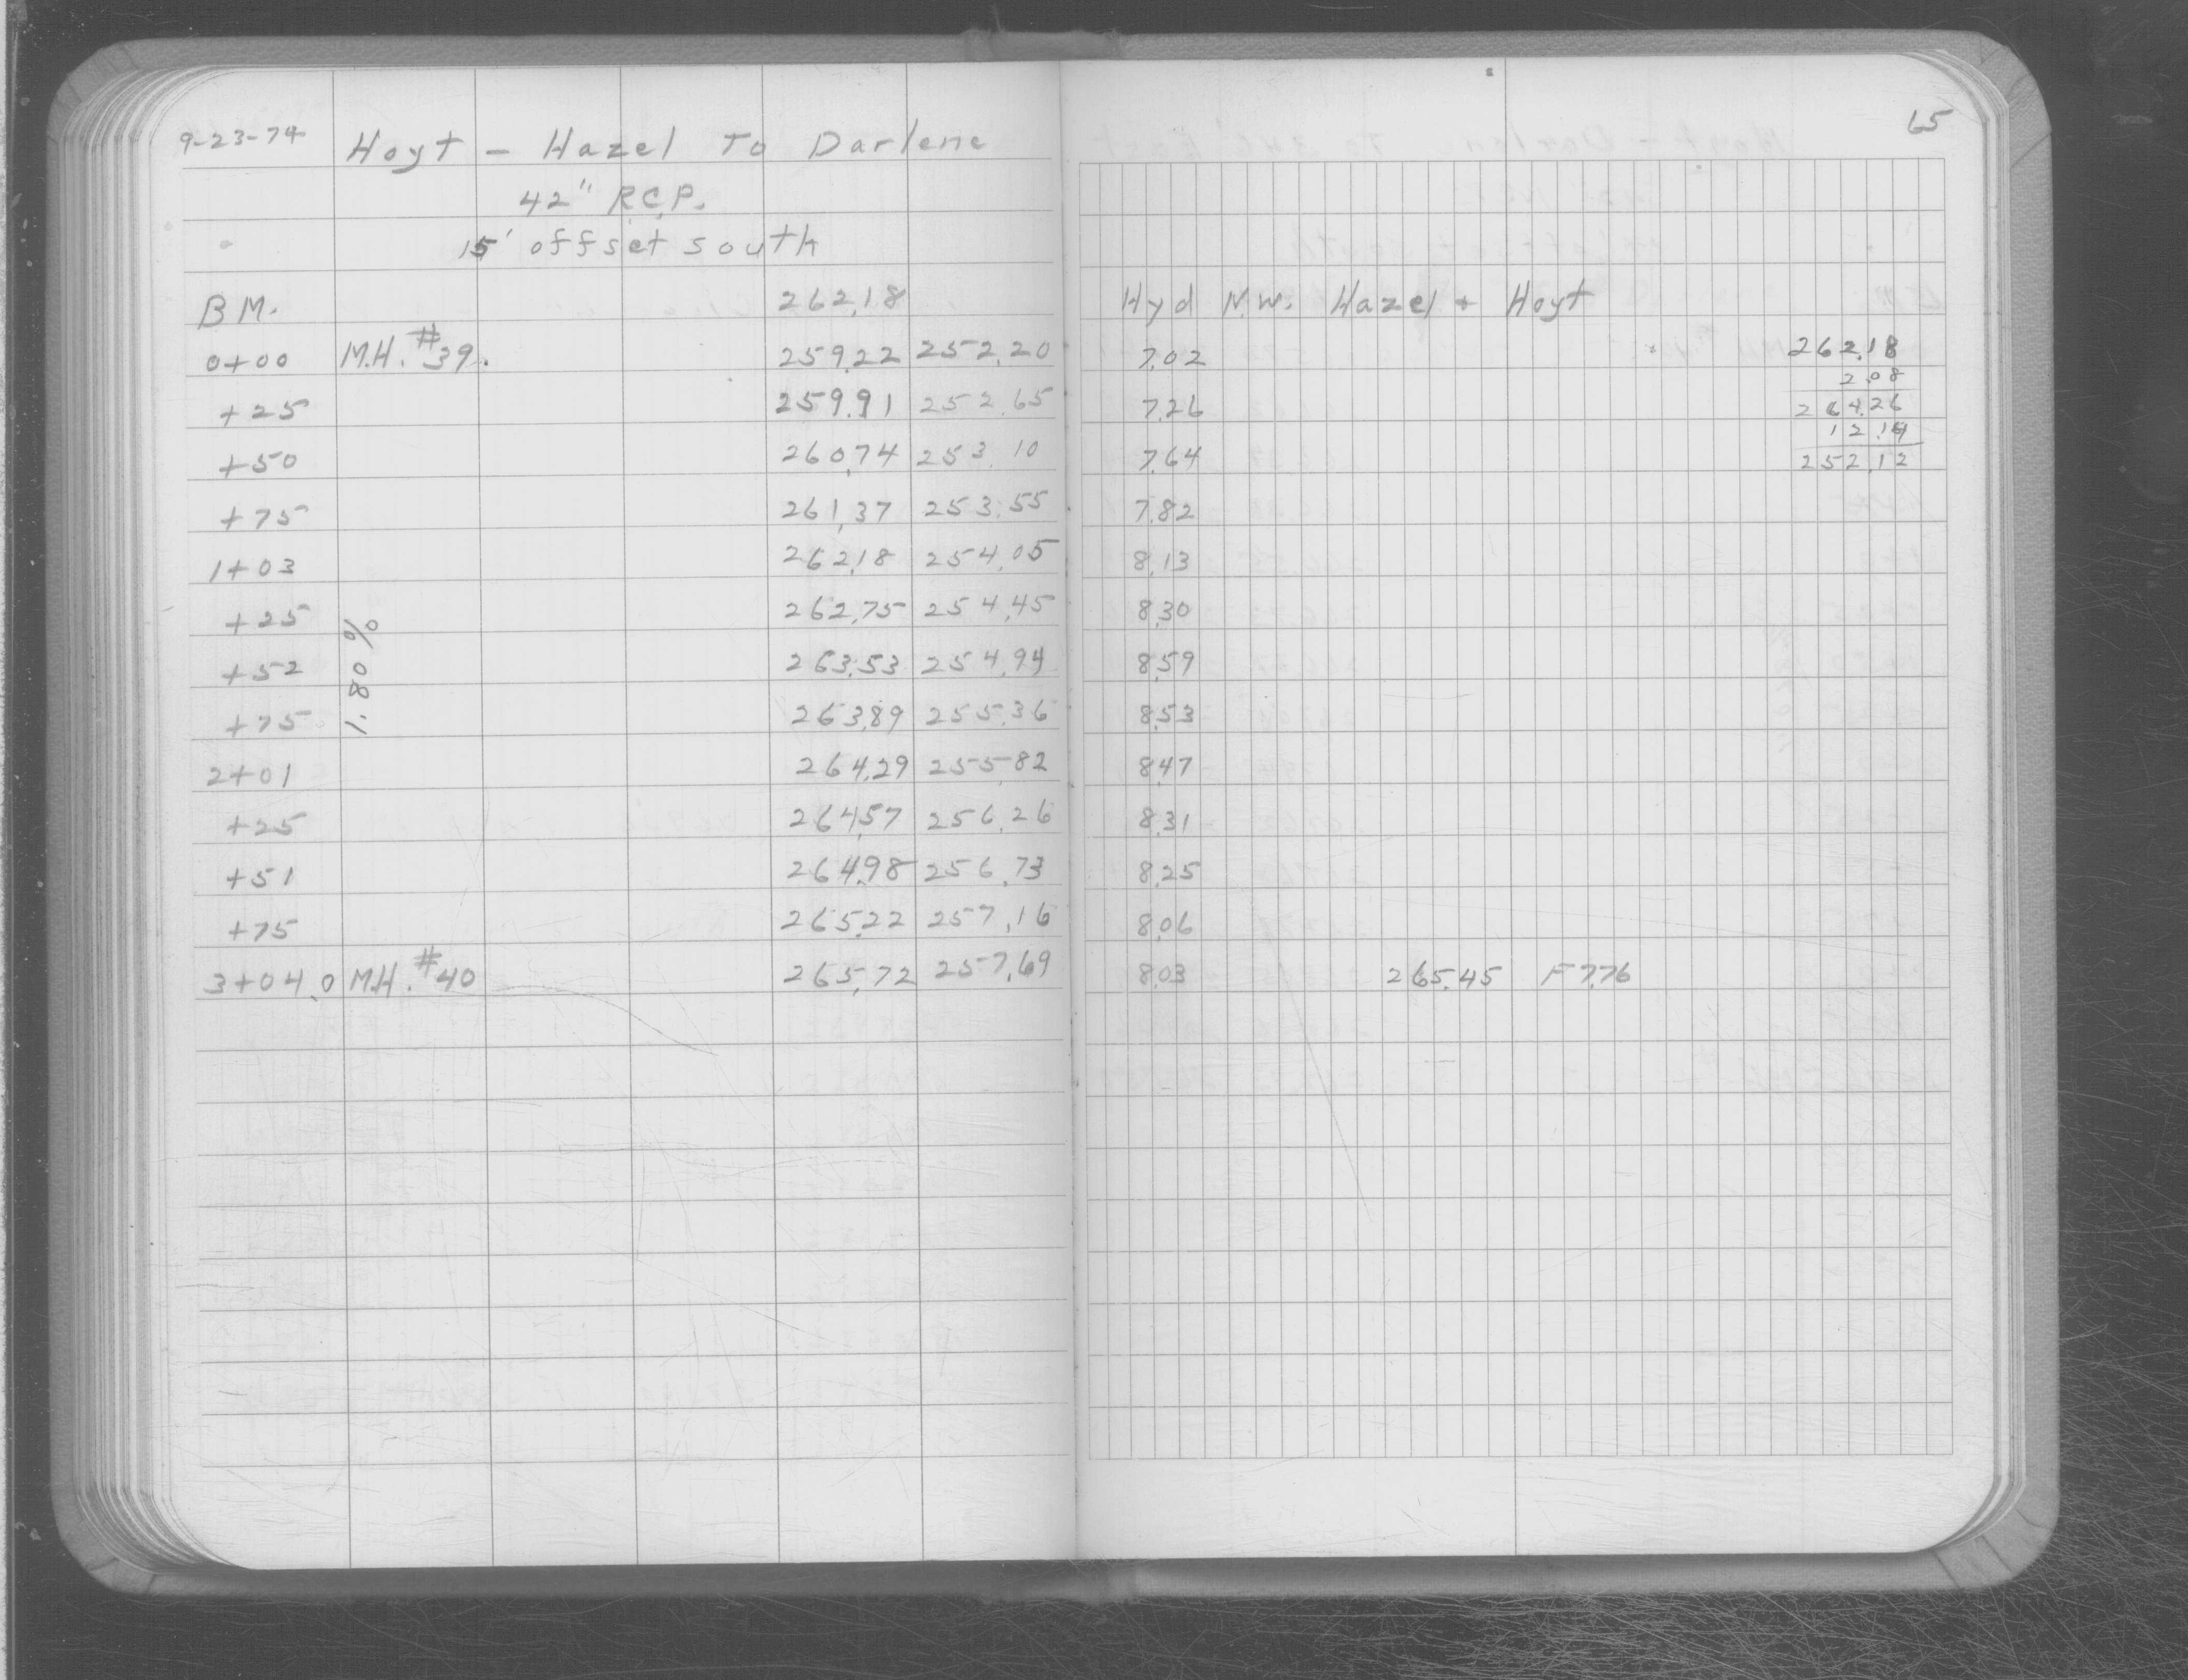 9-23-74 Hoyt - Hazel To Darlene
42" R.C.P.
15' offset south
BM. 262.18
0+00 M.H. #39. 259.22 252.20
+25 259.91 252.65
+50 260.74 253.10
+75 261.37 253.55
1+03 262.18 254.05
+25 262.75 254.45
+52 263.53 254.94
+75 263.89 255.36
2+01 264.29 255.82
+25 264.57 256.26
+51 264.98 256.73
+75 265.22 257.16
3+04.0 M.H. #40 265.72 257.69
1.80%
65
Hyd N.W. Hazel + Hoyt
7.02 262.18
2.08
7.26 264.26
12.14
7.64 252.12
7.82
8.13
8.30
8.59
8.53
8.47
8.31
8.25
8.06
8.03 265.45 F 7.76